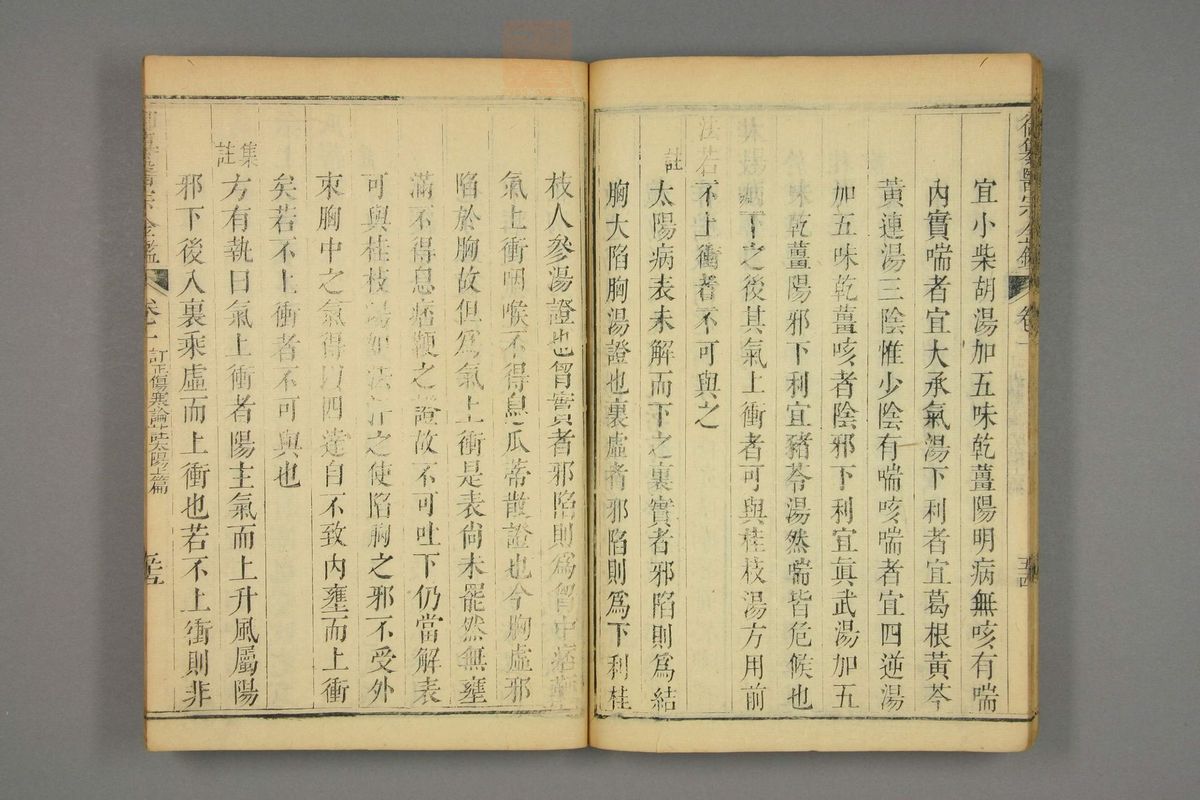 宜小柴胡湯加五味乾薑陽明病無咳有喘
內實喘者宜大承氣湯下利者宜葛根黃芩
黃連湯三陰惟少陰有喘咳喘者宜四逆湯
加五味乾薑咳者陰邪下利宜眞武湯加五
味乾薑陽邪下利宜豬苓湯然喘皆危候也
太陽病下之後其氣上衝者可與桂枝湯方用前
法若不上衝者不可與之
註
太陽病表未解而下之裏實者邪陷則為結
胸大陷胸湯證也裏虛者邪陷則為下利桂
枝人參湯證也胃實者邪陷則為胷中痞鞕
氣上衝咽喉不得息瓜蒂散證也今胸虛邪
陷於胸故但為氣上衝是表尚未罷然無壅
滿不得息痞鞕之證故不可吐下仍當解表
可與桂枝湯如法汗之使陷胸之邪不受外
束胸中之氣得以四達自不致內壅而上衝
矣若不上衝者不可與也
集註
方有執曰氣上衝者陽主氣而上升風屬陽
邪下後入裏乘虛而上衝也若不上衝則非
御纂醫宗金鑑
卷一
訂正傷寒論註太陽上篇
五十五